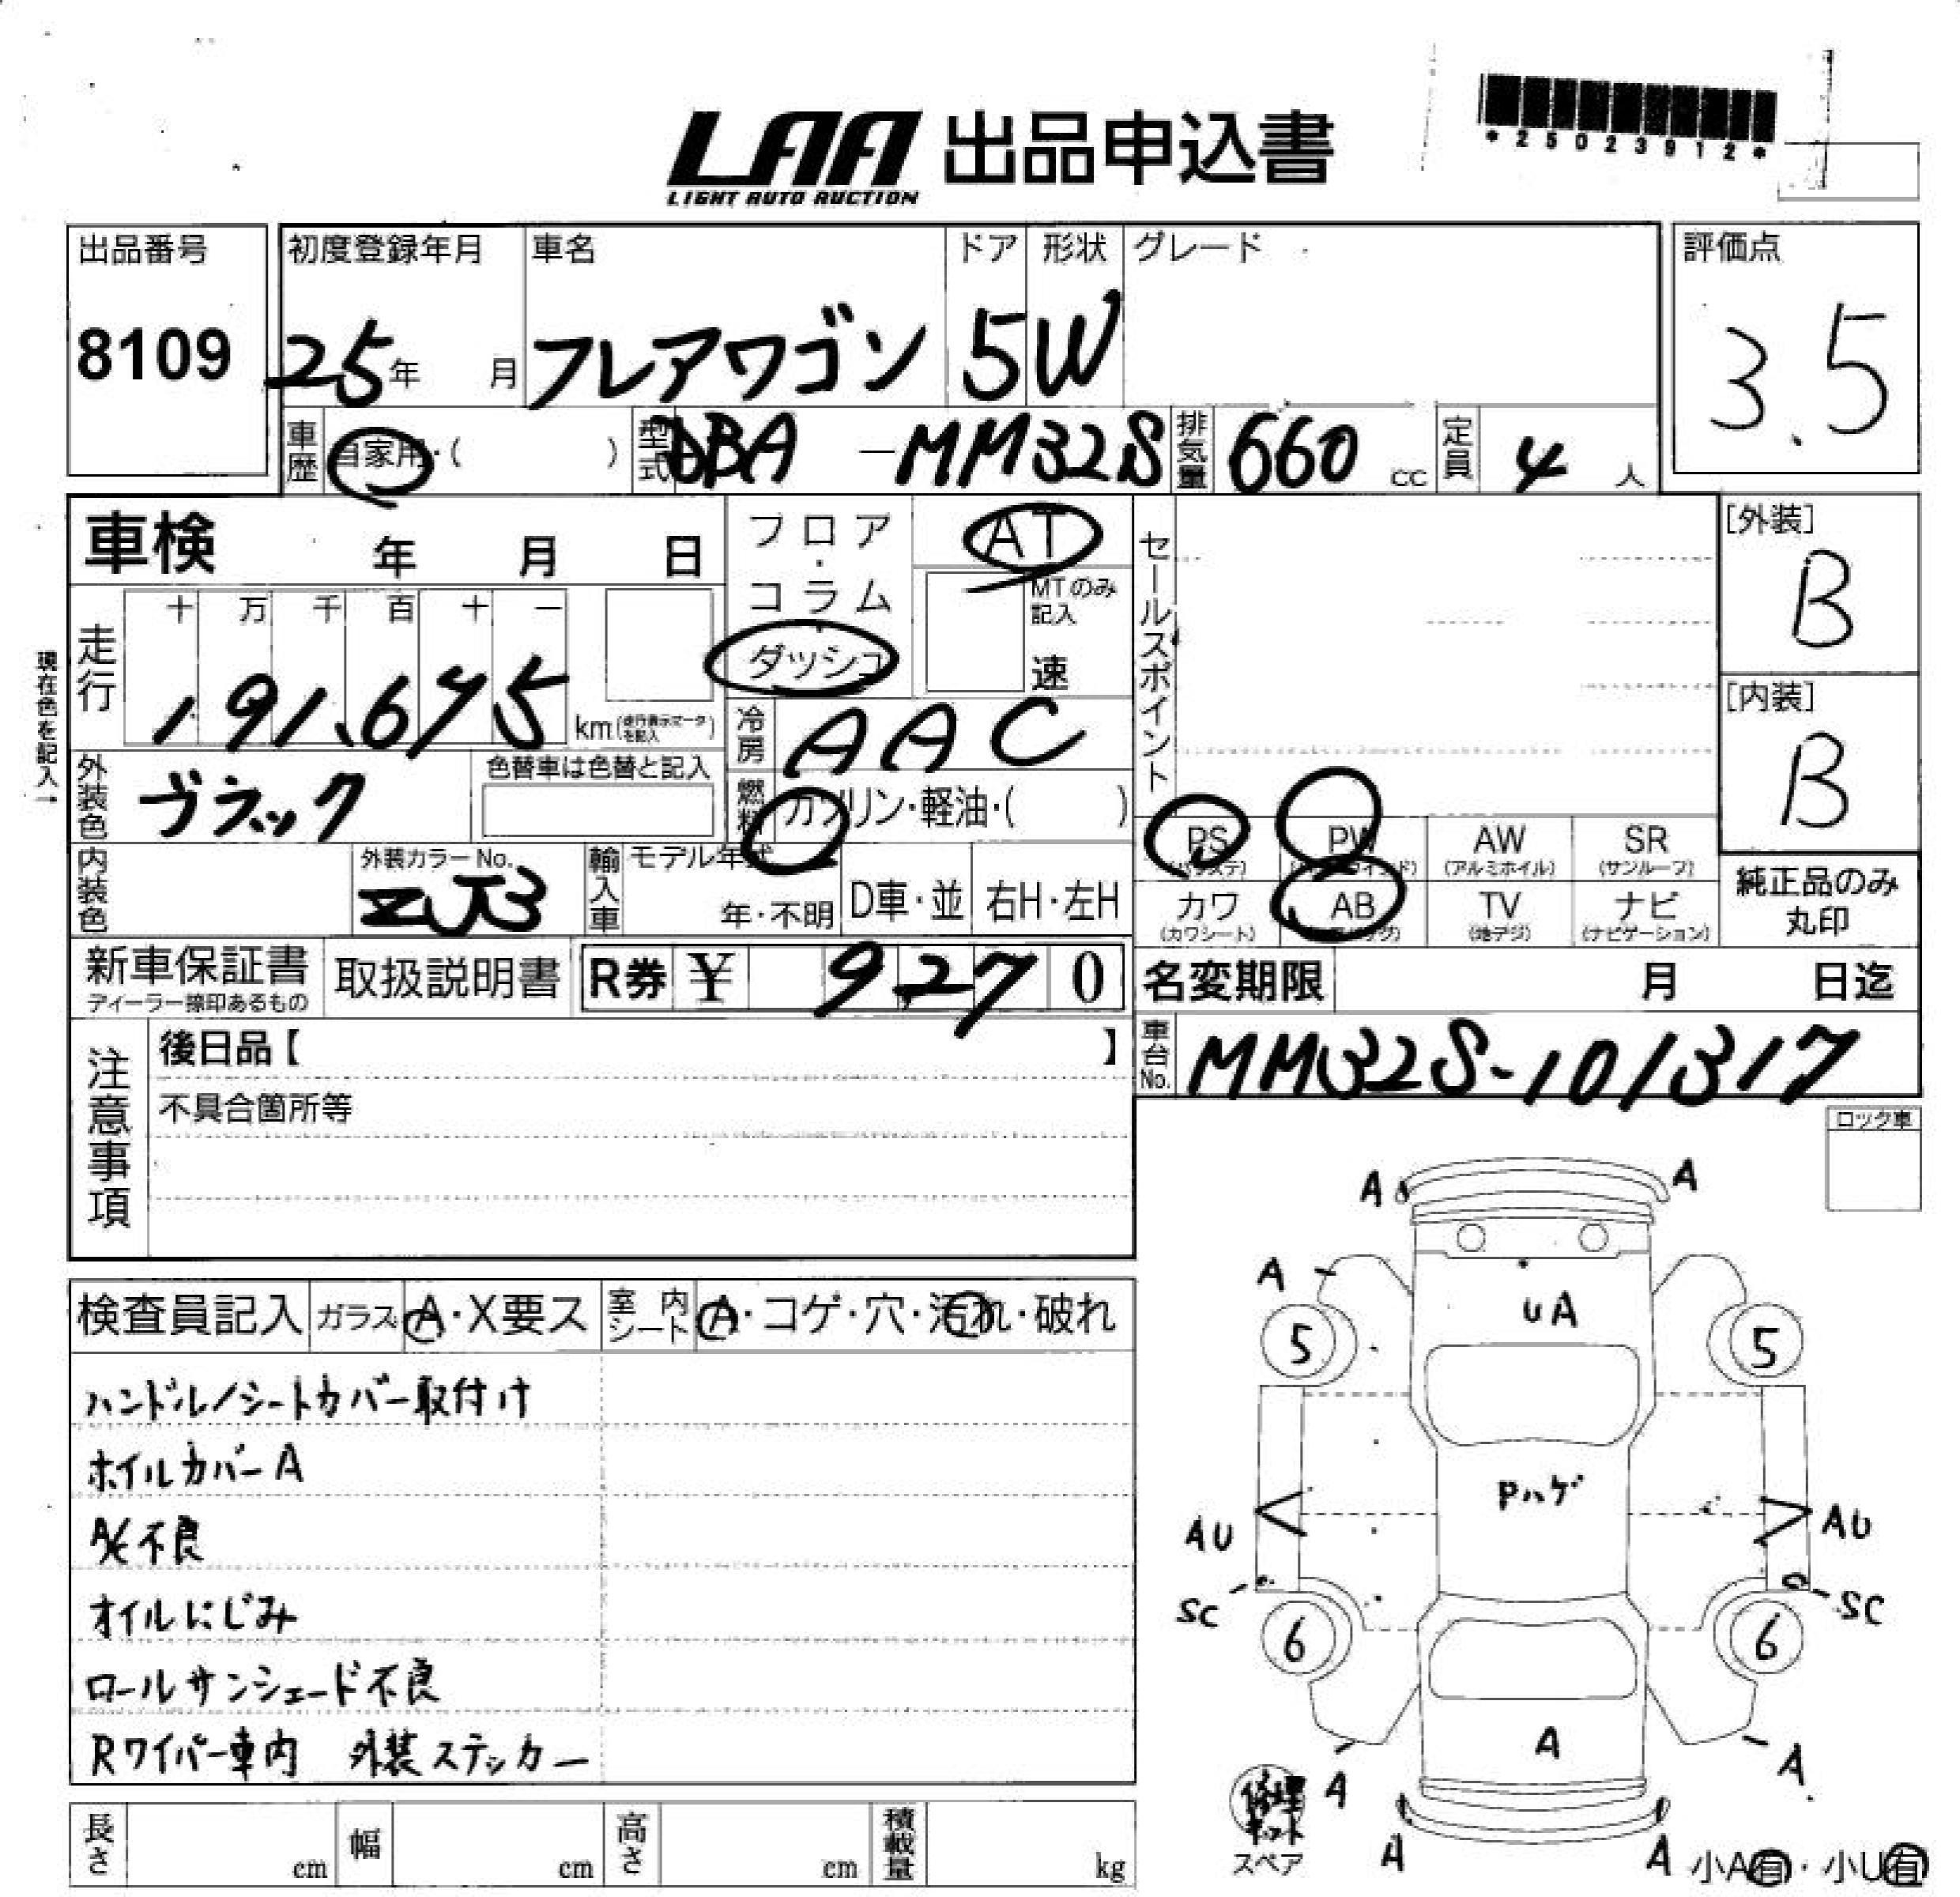 LAA 出品申込書
LIGHT AUTO AUCTION
*25023912*
出品番号 初度登録年月 車名 ドア 形状 グレード 評価点
8109 25年 月 フレアワゴン 5 W 3.5
車歴 自家用・( ) 型式 DBA -MM32S 排気量 660 cc 定員 4 人
車検 年 月 日 フロア・コラム・ダッシュ AT
MTのみ記入
速
セールスポイント
[外装]
B
[内装]
B
現在色を記入→
走行 十 万 千 百 十 一
191,675 km(走行表示マークを記入)
冷房 AAC
外装色 ブラック 色替車は色替と記入
燃料 ガソリン・軽油・( )
PS (パワステ) PW (パワーウインド) AW (アルミホイル) SR (サンルーフ)
カワ (カワシート) AB (エアバッグ) TV (地デジ) ナビ (ナビゲーション)
純正品のみ丸印
内装色 外装カラーNo. ZJ3 輸入車 モデル年式 年・不明 D車・並 右H・左H
新車保証書 ディーラー捺印あるもの 取扱説明書 R券 ¥ 9,270
名変期限 月 日迄
車台No. MM32S-101317
注意事項
後日品【 】
不具合箇所等
ロック車
検査員記入 ガラス A・X要ス 室内シート A・コゲ・穴・汚れ・破れ
ハンドル/シートカバー取付け
ホイルカバーA
A/C不良
オイルにじみ
ロールサンシェード不良
Rワイパー車内 外装ステッカー
A A
A
UA
5 5
Pハゲ
AU AU
SC SC
6 6
A
A A
修理キット
スペア
A A
小A有・小U有
長さ cm 幅 cm 高さ cm 積載量 kg